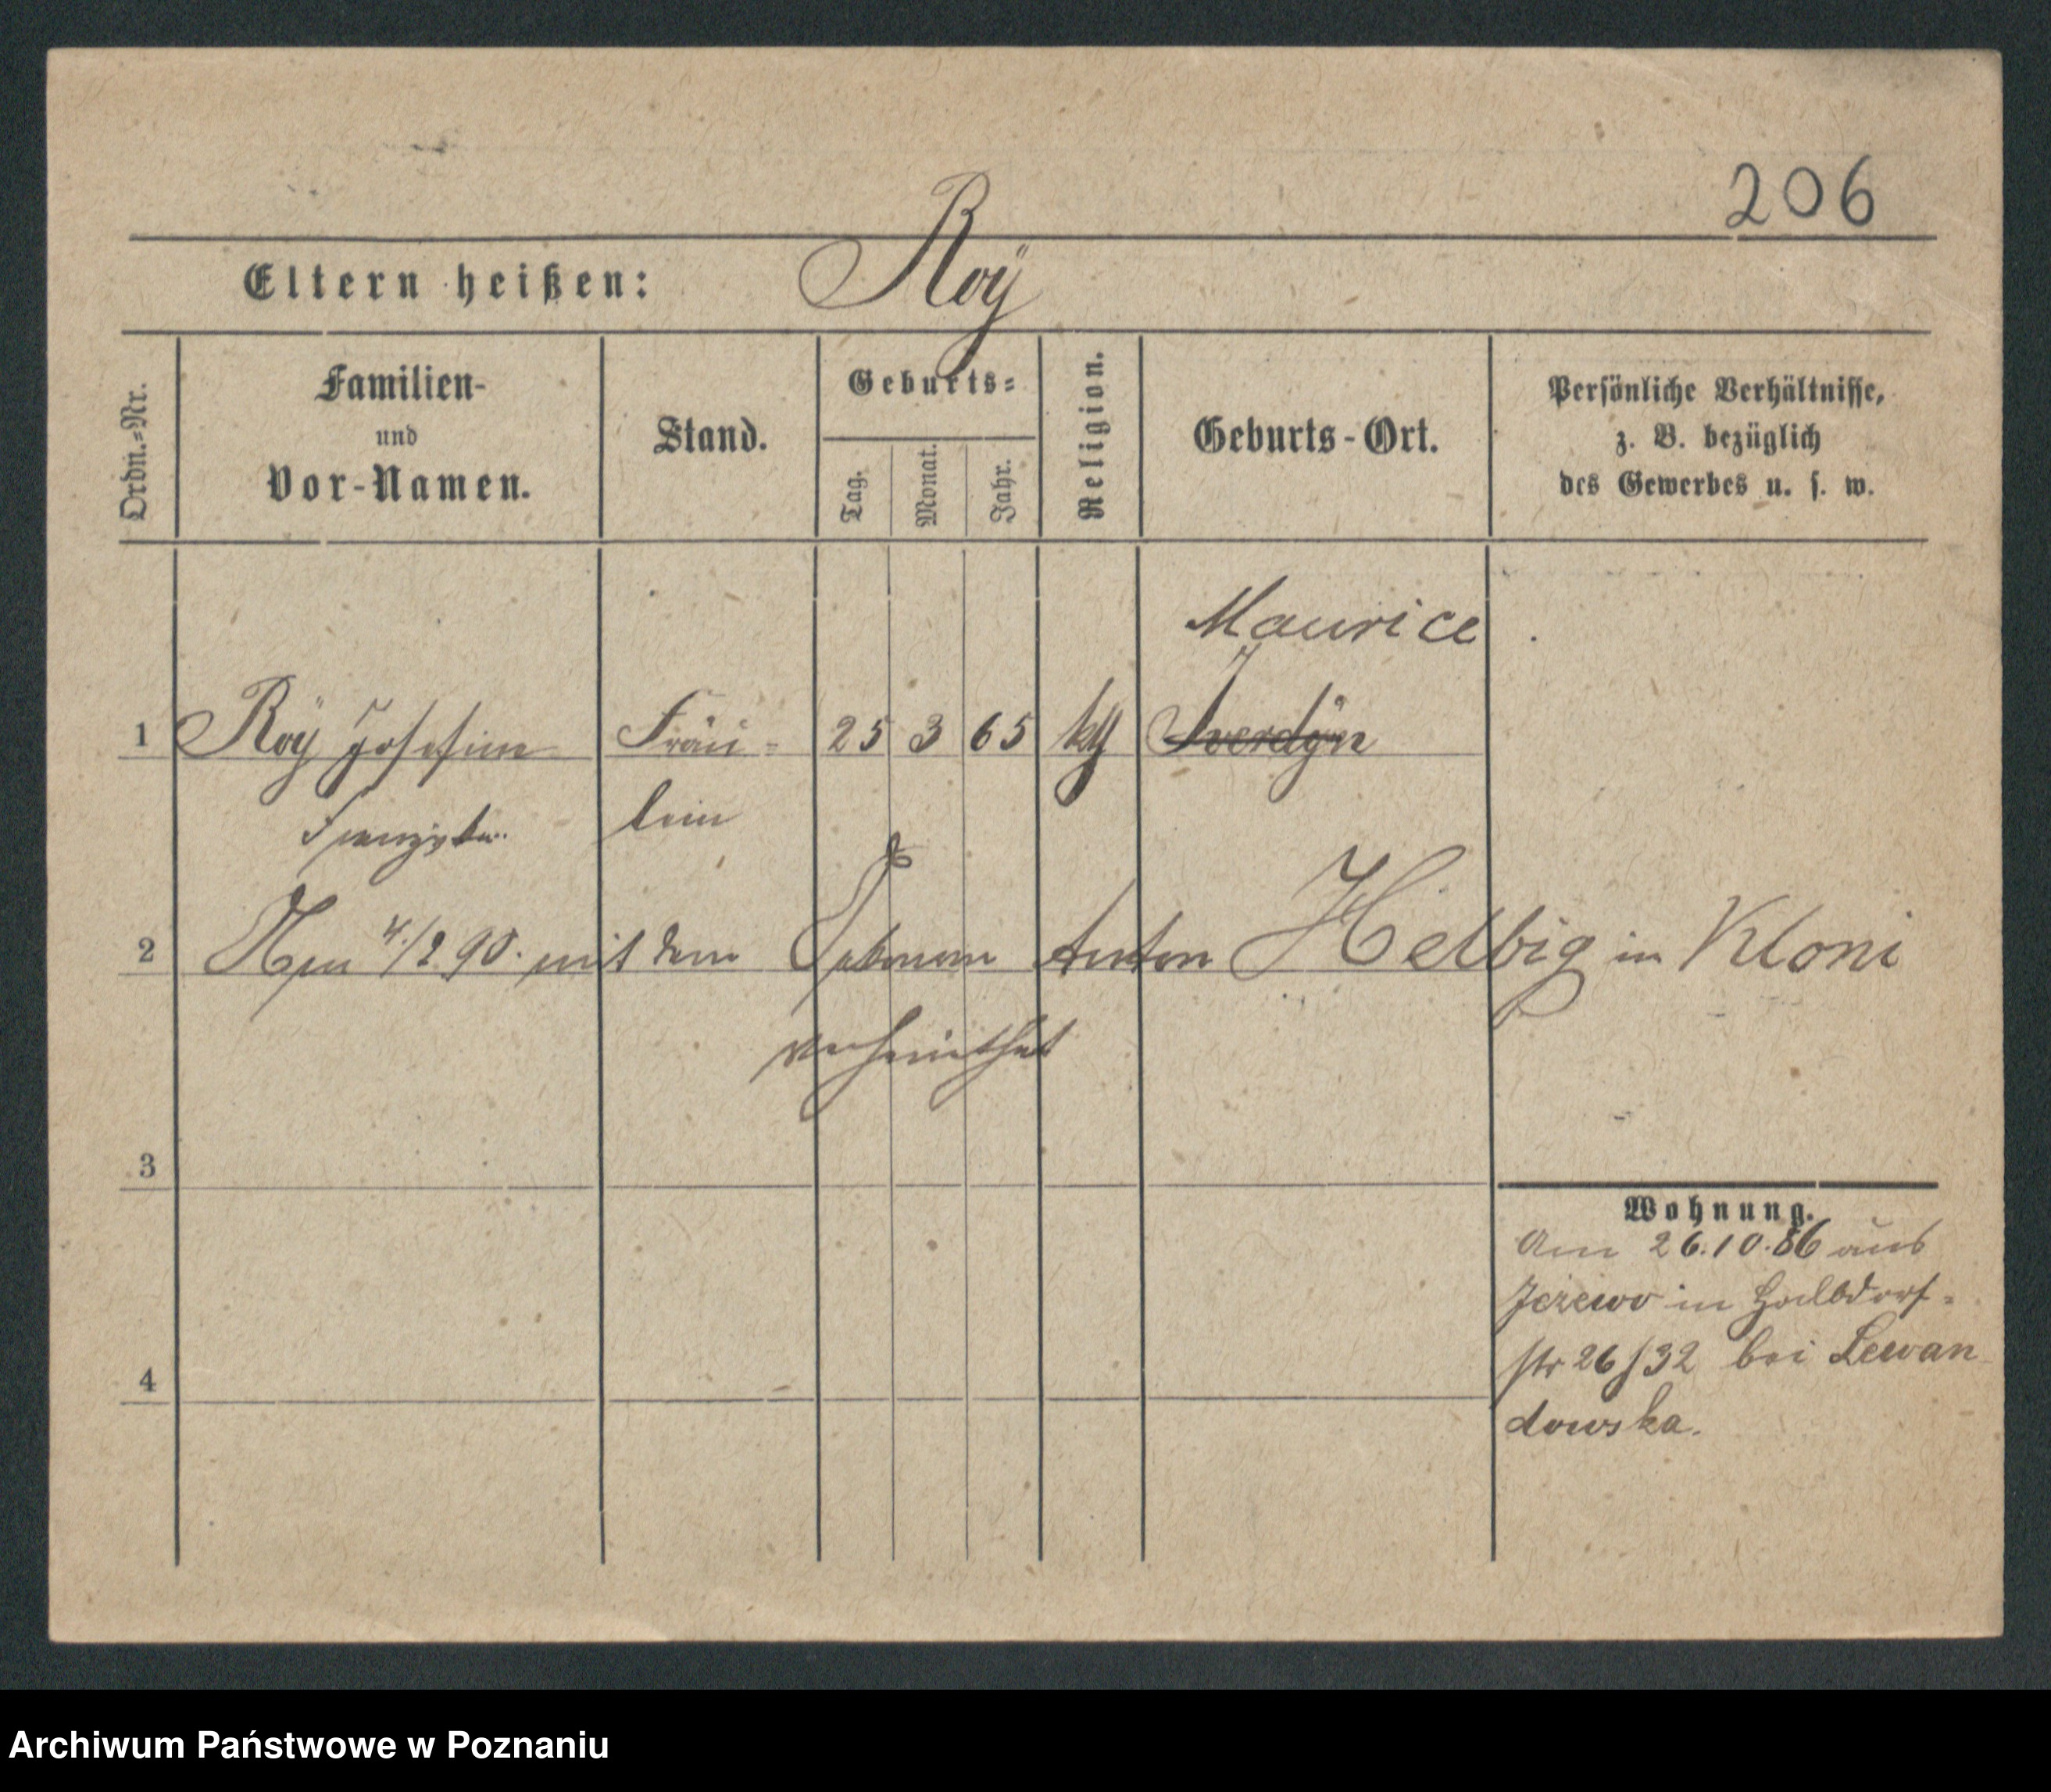 206
Eltern heißen: Roÿ
Ordn.-Nr.
Familien-
und
Vor-Namen.
Stand.
Geburts-
Tag.
Monat.
Jahr.
Religion.
Geburts-Ort.
Persönliche Verhältnisse,
z. B. bezüglich
des Gewerbes u. s. w.
Maurice
1 Roÿ Josefine Fräu- 25 3 65 kth
Franziska lein
2 4./2 90. mit dem Anton Helbig in Kloni
verheirathet
3
Wohnung.
Am 26.10.86 aus
Jeżewo in Halbdorf-
str 26/32 bei Lewan
dowska.
4
Archiwum Państwowe w Poznaniu